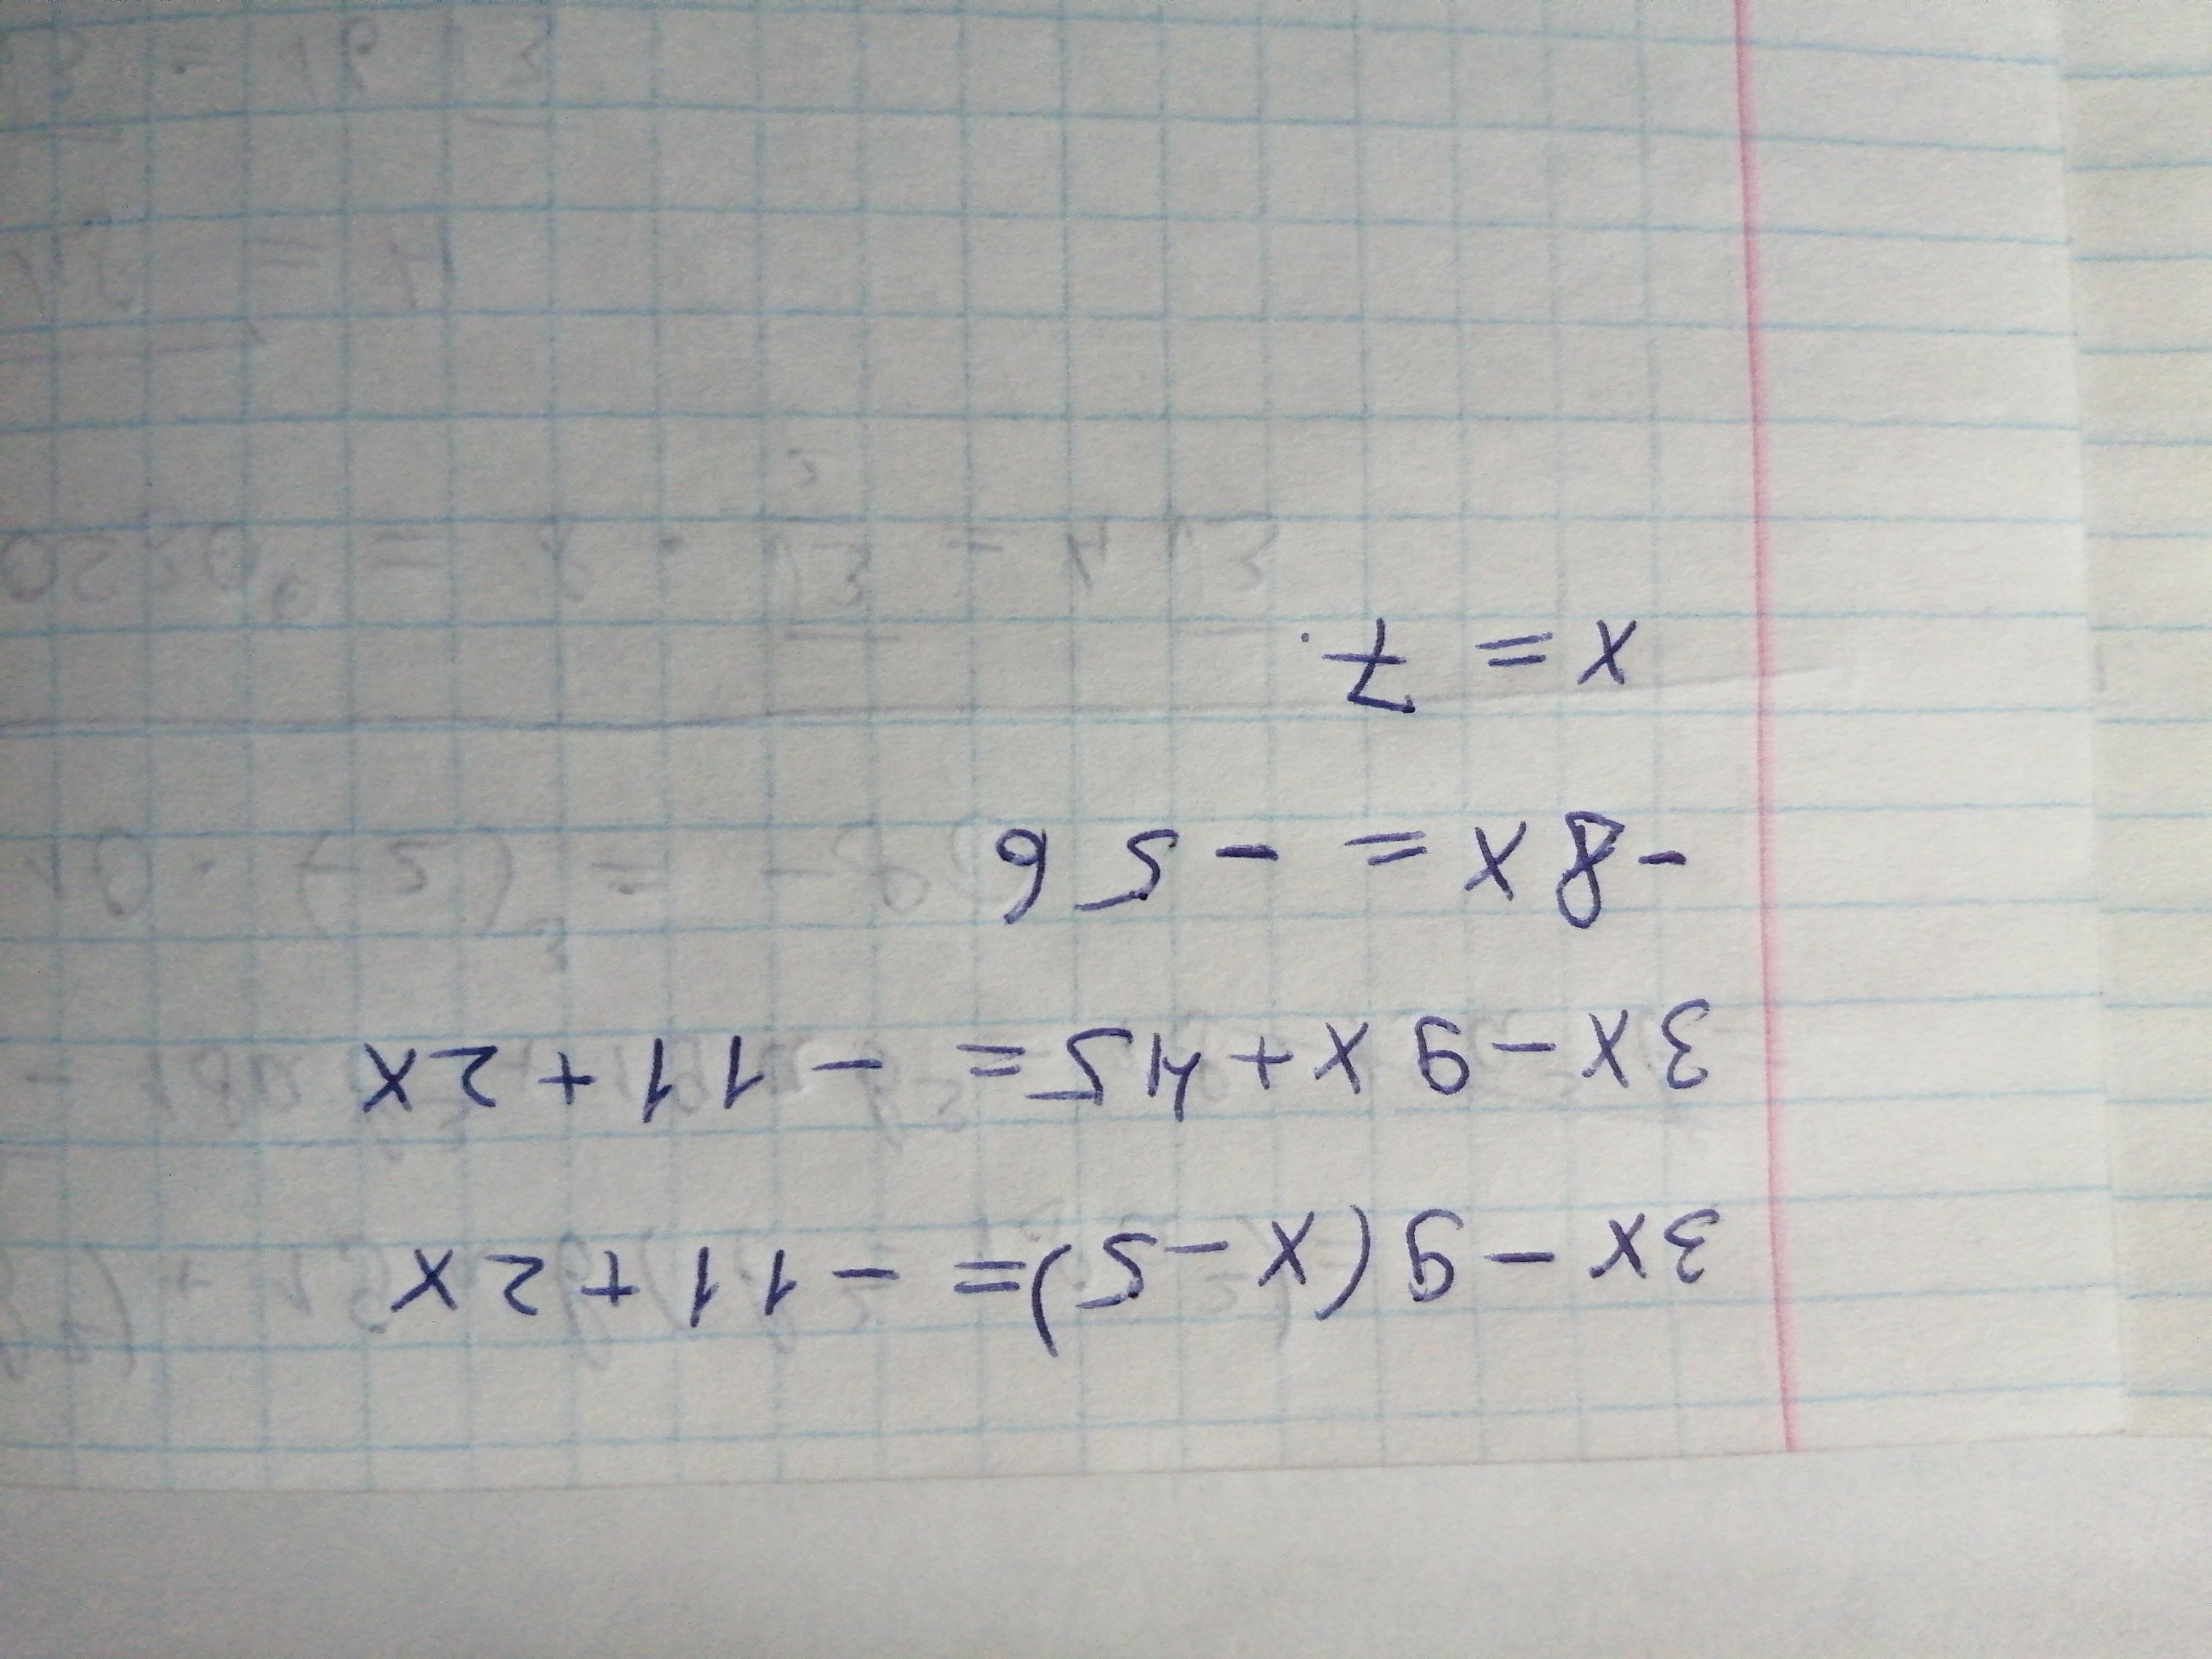 3x - 9(x - 5) = - 11 + 2x
3x - 9x + 45 = - 11 + 2x
- 8x = - 56
x = 7.